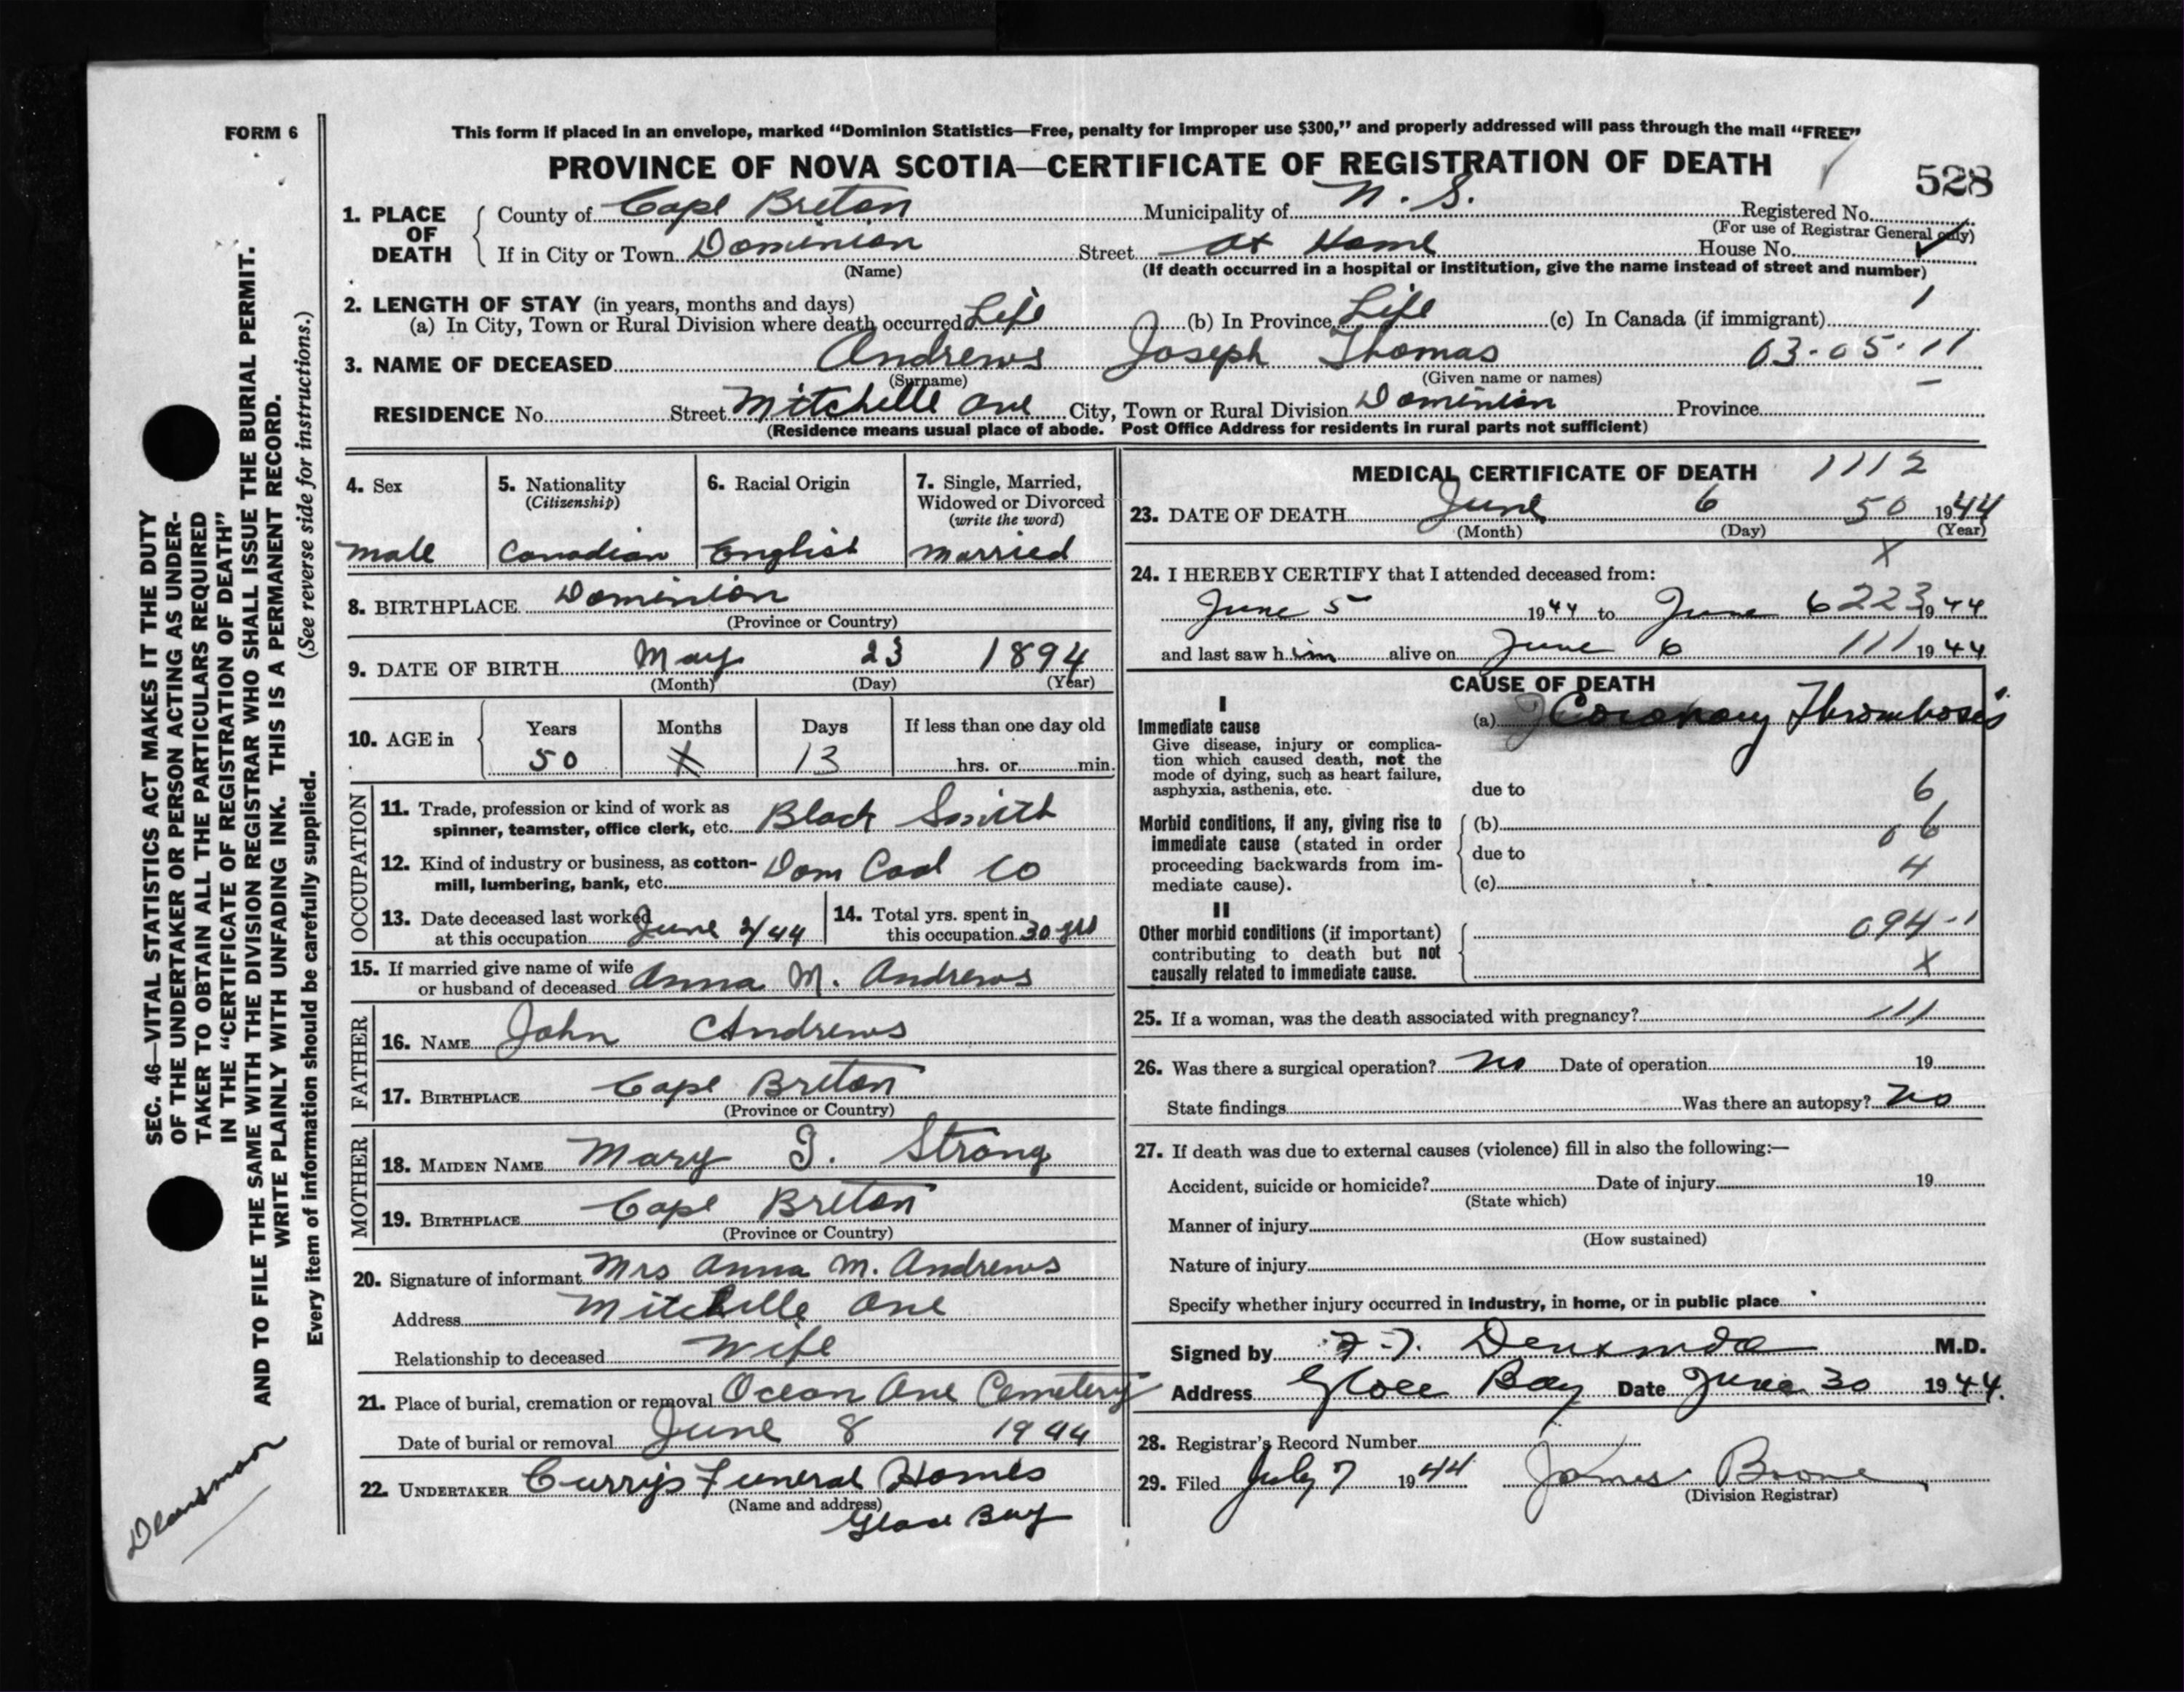 FORM 6
This form if placed in an envelope, marked “Dominion Statistics—Free, penalty for improper use $300,” and properly addressed will pass through the mail “FREE”
PROVINCE OF NOVA SCOTIA—CERTIFICATE OF REGISTRATION OF DEATH
528
1. PLACE OF DEATH
County of Cape Breton Municipality of N. S. Registered No.
(For use of Registrar General only)
If in City or Town Dominion Street At Home House No.
(Name) (If death occurred in a hospital or institution, give the name instead of street and number)
2. LENGTH OF STAY (in years, months and days) 1
(a) In City, Town or Rural Division where death occurred Life (b) In Province Life (c) In Canada (if immigrant)
3. NAME OF DECEASED Andrews Joseph Thomas 03-05-11
(Surname) (Given name or names)
RESIDENCE No. Street Mitchelle Ave City, Town or Rural Division Dominion Province
(Residence means usual place of abode. Post Office Address for residents in rural parts not sufficient)
4. Sex
Male
5. Nationality
(Citizenship)
Canadian
6. Racial Origin
English
7. Single, Married,
Widowed or Divorced
(write the word)
Married
8. BIRTHPLACE Dominion
(Province or Country)
9. DATE OF BIRTH May 23 1894
(Month) (Day) (Year)
10. AGE in
Years Months Days If less than one day old
50 X 13 hrs. or min.
OCCUPATION
11. Trade, profession or kind of work as
spinner, teamster, office clerk, etc. Black Smith
12. Kind of industry or business, as cotton-
mill, lumbering, bank, etc. Dom Coal Co
13. Date deceased last worked
at this occupation June 2/44
14. Total yrs. spent in
this occupation 30 yrs
15. If married give name of wife
or husband of deceased Anna M. Andrews
FATHER
16. NAME John Andrews
17. BIRTHPLACE Cape Breton
(Province or Country)
MOTHER
18. MAIDEN NAME Mary J. Strong
19. BIRTHPLACE Cape Breton
(Province or Country)
20. Signature of informant Mrs Anna M. Andrews
Address Mitchelle Ave
Relationship to deceased Wife
21. Place of burial, cremation or removal Ocean Ave Cemetery
Date of burial or removal June 8 1944
22. UNDERTAKER Curry's Funeral Homes
(Name and address)
Glace Bay
MEDICAL CERTIFICATE OF DEATH 1112
23. DATE OF DEATH June 6 50 1944
(Month) (Day) (Year)
X
24. I HEREBY CERTIFY that I attended deceased from:
June 5 1944 to June 6 223 1944
and last saw him alive on June 6 111 1944
CAUSE OF DEATH
I
Immediate cause
Give disease, injury or complica-
tion which caused death, not the
mode of dying, such as heart failure,
asphyxia, asthenia, etc.
(a) Coronary Thrombosis
due to 6
Morbid conditions, if any, giving rise to
immediate cause (stated in order
proceeding backwards from im-
mediate cause).
(b)
06
due to
4
(c)
II
Other morbid conditions (if important)
contributing to death but not
causally related to immediate cause.
094-1
X
25. If a woman, was the death associated with pregnancy? 111
26. Was there a surgical operation? No Date of operation 19
State findings Was there an autopsy? No
27. If death was due to external causes (violence) fill in also the following:—
Accident, suicide or homicide? Date of injury 19
(State which)
Manner of injury
(How sustained)
Nature of injury
Specify whether injury occurred in industry, in home, or in public place
Signed by M.D.
Address Glace Bay Date June 30 1944.
28. Registrar's Record Number
29. Filed July 7 1944 James Boone
(Division Registrar)
SEC. 46—VITAL STATISTICS ACT MAKES IT THE DUTY
OF THE UNDERTAKER OR PERSON ACTING AS UNDER-
TAKER TO OBTAIN ALL THE PARTICULARS REQUIRED
IN THE “CERTIFICATE OF REGISTRATION OF DEATH”
AND TO FILE THE SAME WITH THE DIVISION REGISTRAR WHO SHALL ISSUE THE BURIAL PERMIT.
WRITE PLAINLY WITH UNFADING INK. THIS IS A PERMANENT RECORD.
Every item of information should be carefully supplied. (See reverse side for instructions.)